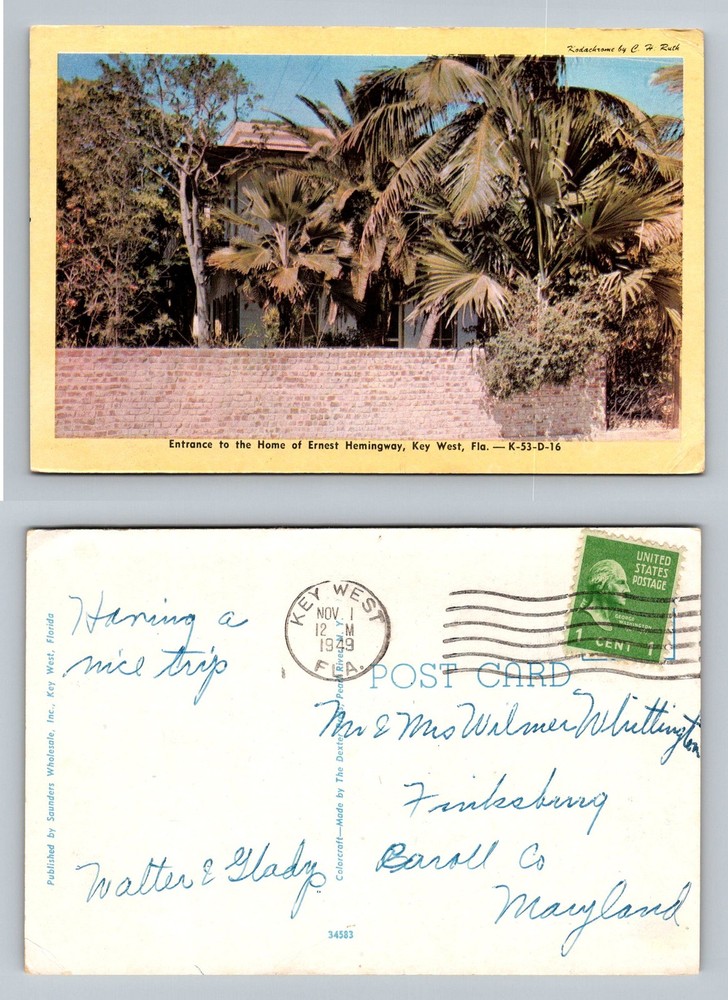 Kodachrome by C. H. Ruth
Entrance to the Home of Ernest Hemingway, Key West, Fla. — K-53-D-16
Having a
nice trip
Walter & Gladys
Published by Saunders Wholesale, Inc., Key West, Florida
Colorcraft—Made by The Dexter Pearl River, N. Y.
34583
KEY WEST
NOV. 1
12 M
1949
FLA.
UNITED
STATES
POSTAGE
GEORGE
WASHINGTON
1 CENT
POST CARD
Mr & Mrs Wilmer Whittington
Finksburg
Caroll Co
Maryland